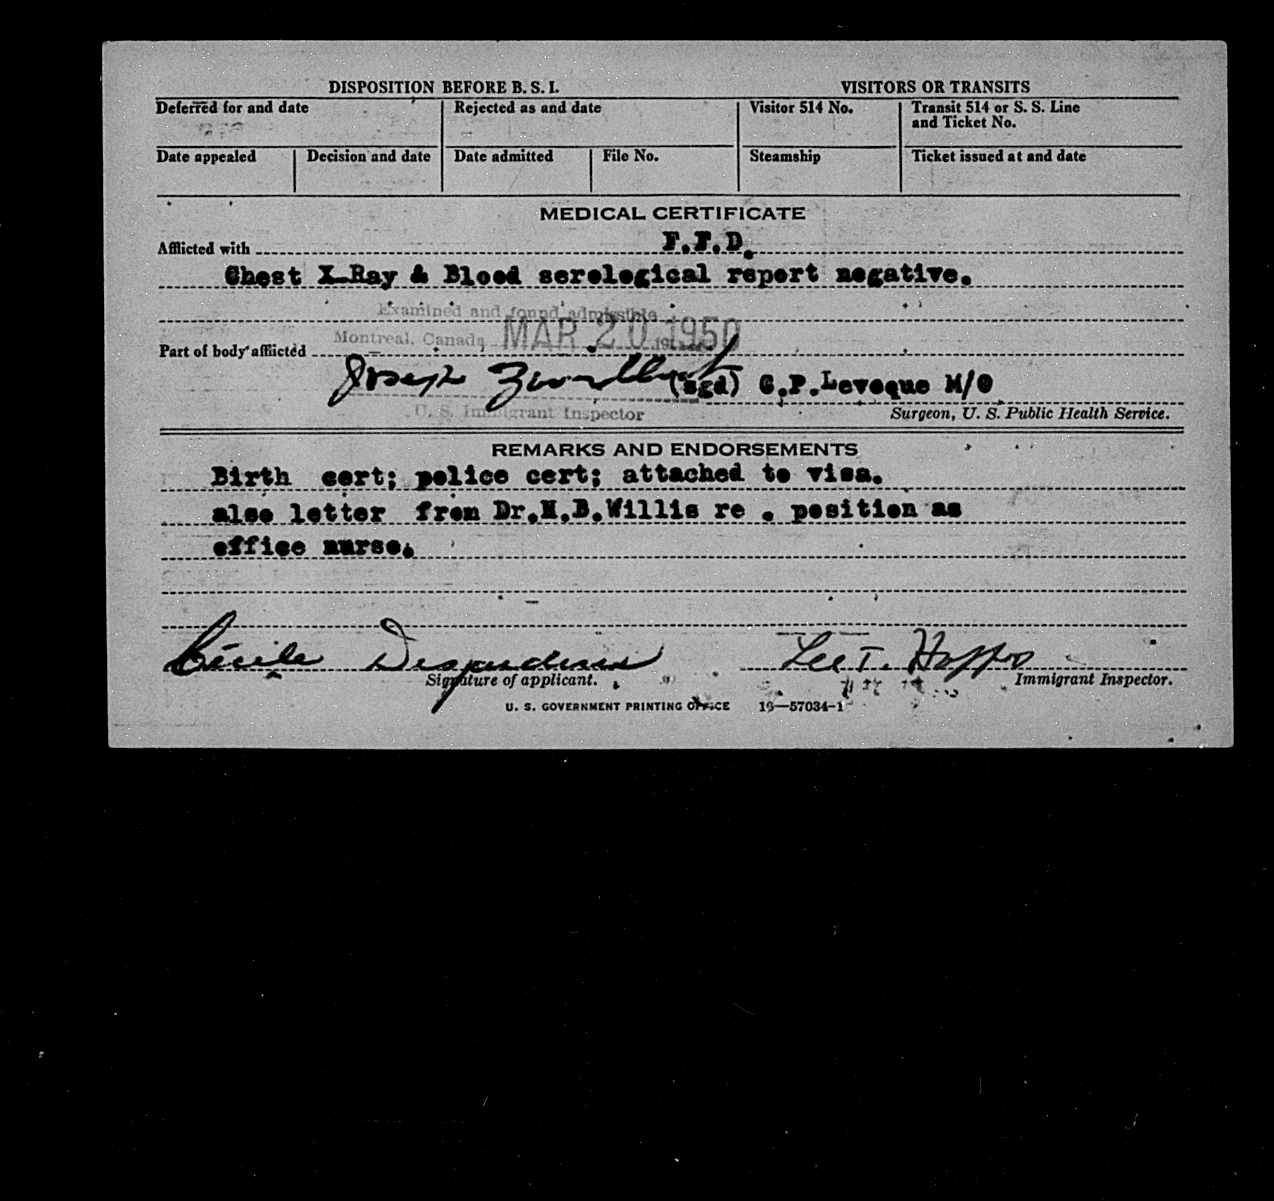 DISPOSITION BEFORE B. S. I. VISITORS OR TRANSITS
Deferred for and date Rejected as and date Visitor 514 No. Transit 514 or S. S. Line and Ticket No.
Date appealed Decision and date Date admitted File No. Steamship Ticket issued at and date
MEDICAL CERTIFICATE
Afflicted with F.F.D.
Chest X-Ray & Blood serological report negative.
Examined and found admissible
Montreal, Canada MAR 20 1950
Part of body afflicted
Joseph (sgd) G.P.Leveque M/O
U. S. Immigrant Inspector Surgeon, U. S. Public Health Service.
REMARKS AND ENDORSEMENTS
Birth cert; police cert; attached to visa.
also letter from Dr.H.B.Willis re . position as
office nurse.
Cécile Desjardins Lee T.
Signature of applicant. Immigrant Inspector.
U. S. GOVERNMENT PRINTING OFFICE 16—57034-1